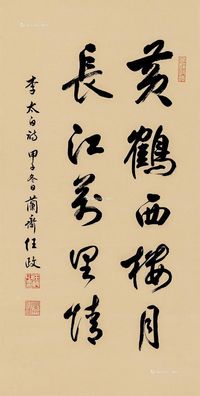 黄鶴西樓月
長江萬里情
李太白詩 甲子冬日 蘭齋任政